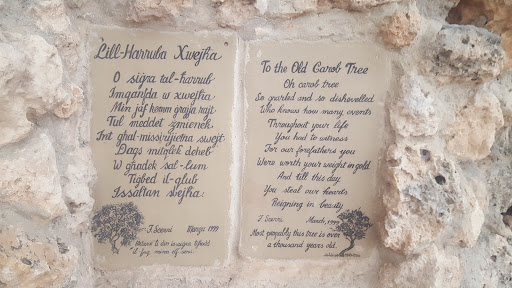 Lill-Ħarruba Xwejħa
O siġra tal-ħarrub
Imgħanda w xwejħa
Min jaf kemm ġrajja rajt
Tul meddet żmienek
Int għal-missirijietna swejt
Daqs mitqlek deheb
W għadek sal-lum
Tigbed il-qlub
Issaltan sejħa.
J. Scerri
Marzu 1999
To the Old Carob Tree
Oh carob tree
So gnarled and so dishevelled
Who knows how many events
Throughout your life
You had to witness
For our forefathers you
Were worth your weight in gold
And till this day
You steal our hearts
Reigning in beauty
J. Scerri.
March, 1999
Most propably this tree is over
a thousand years old.